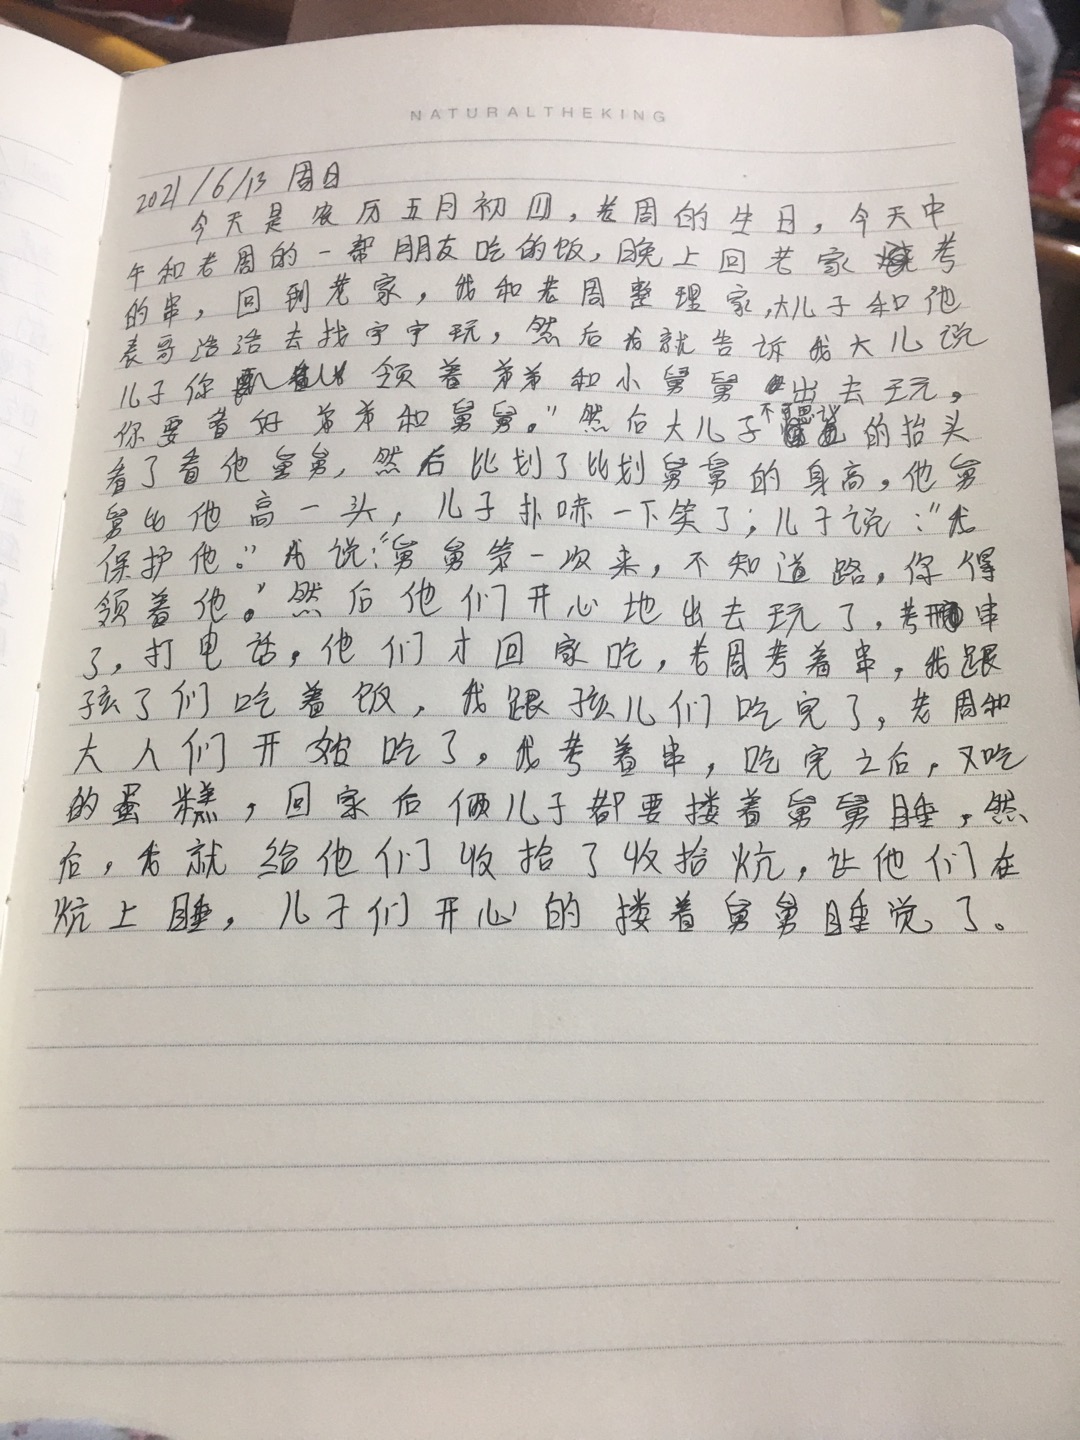 NATURALTHEKING
2021/6/13 周日
今天是农历五月初四,老周的生日,今天中
午和老周的一帮朋友吃的饭,晚上回老家考
的串,回到老家,我和老周整理家,大儿子和他
表哥浩浩去找宇宇玩,然后我就告诉我大儿说
儿子你领着弟弟和小舅舅出去玩,
你要看好弟弟和舅舅。"然后大儿子不可思议的抬头
看了看他舅舅,然后比划了比划舅舅的身高,他舅
舅比他高一头,儿子扑哧一下笑了;儿子说:"我
保护他。"我说:"舅舅第一次来,不知道路,你得
领着他。"然后他们开心地出去玩了,考串
了,打电话,他们才回家吃,老周考着串,我跟
孩子们吃着饭,我跟孩儿们吃完了,老周和
大人们开始吃了。我考着串,吃完之后,又吃
的蛋糕,回家后俩儿子都要搂着舅舅睡,然
后,我就给他们收拾了收拾炕,让他们在
炕上睡,儿子们开心的搂着舅舅睡觉了。